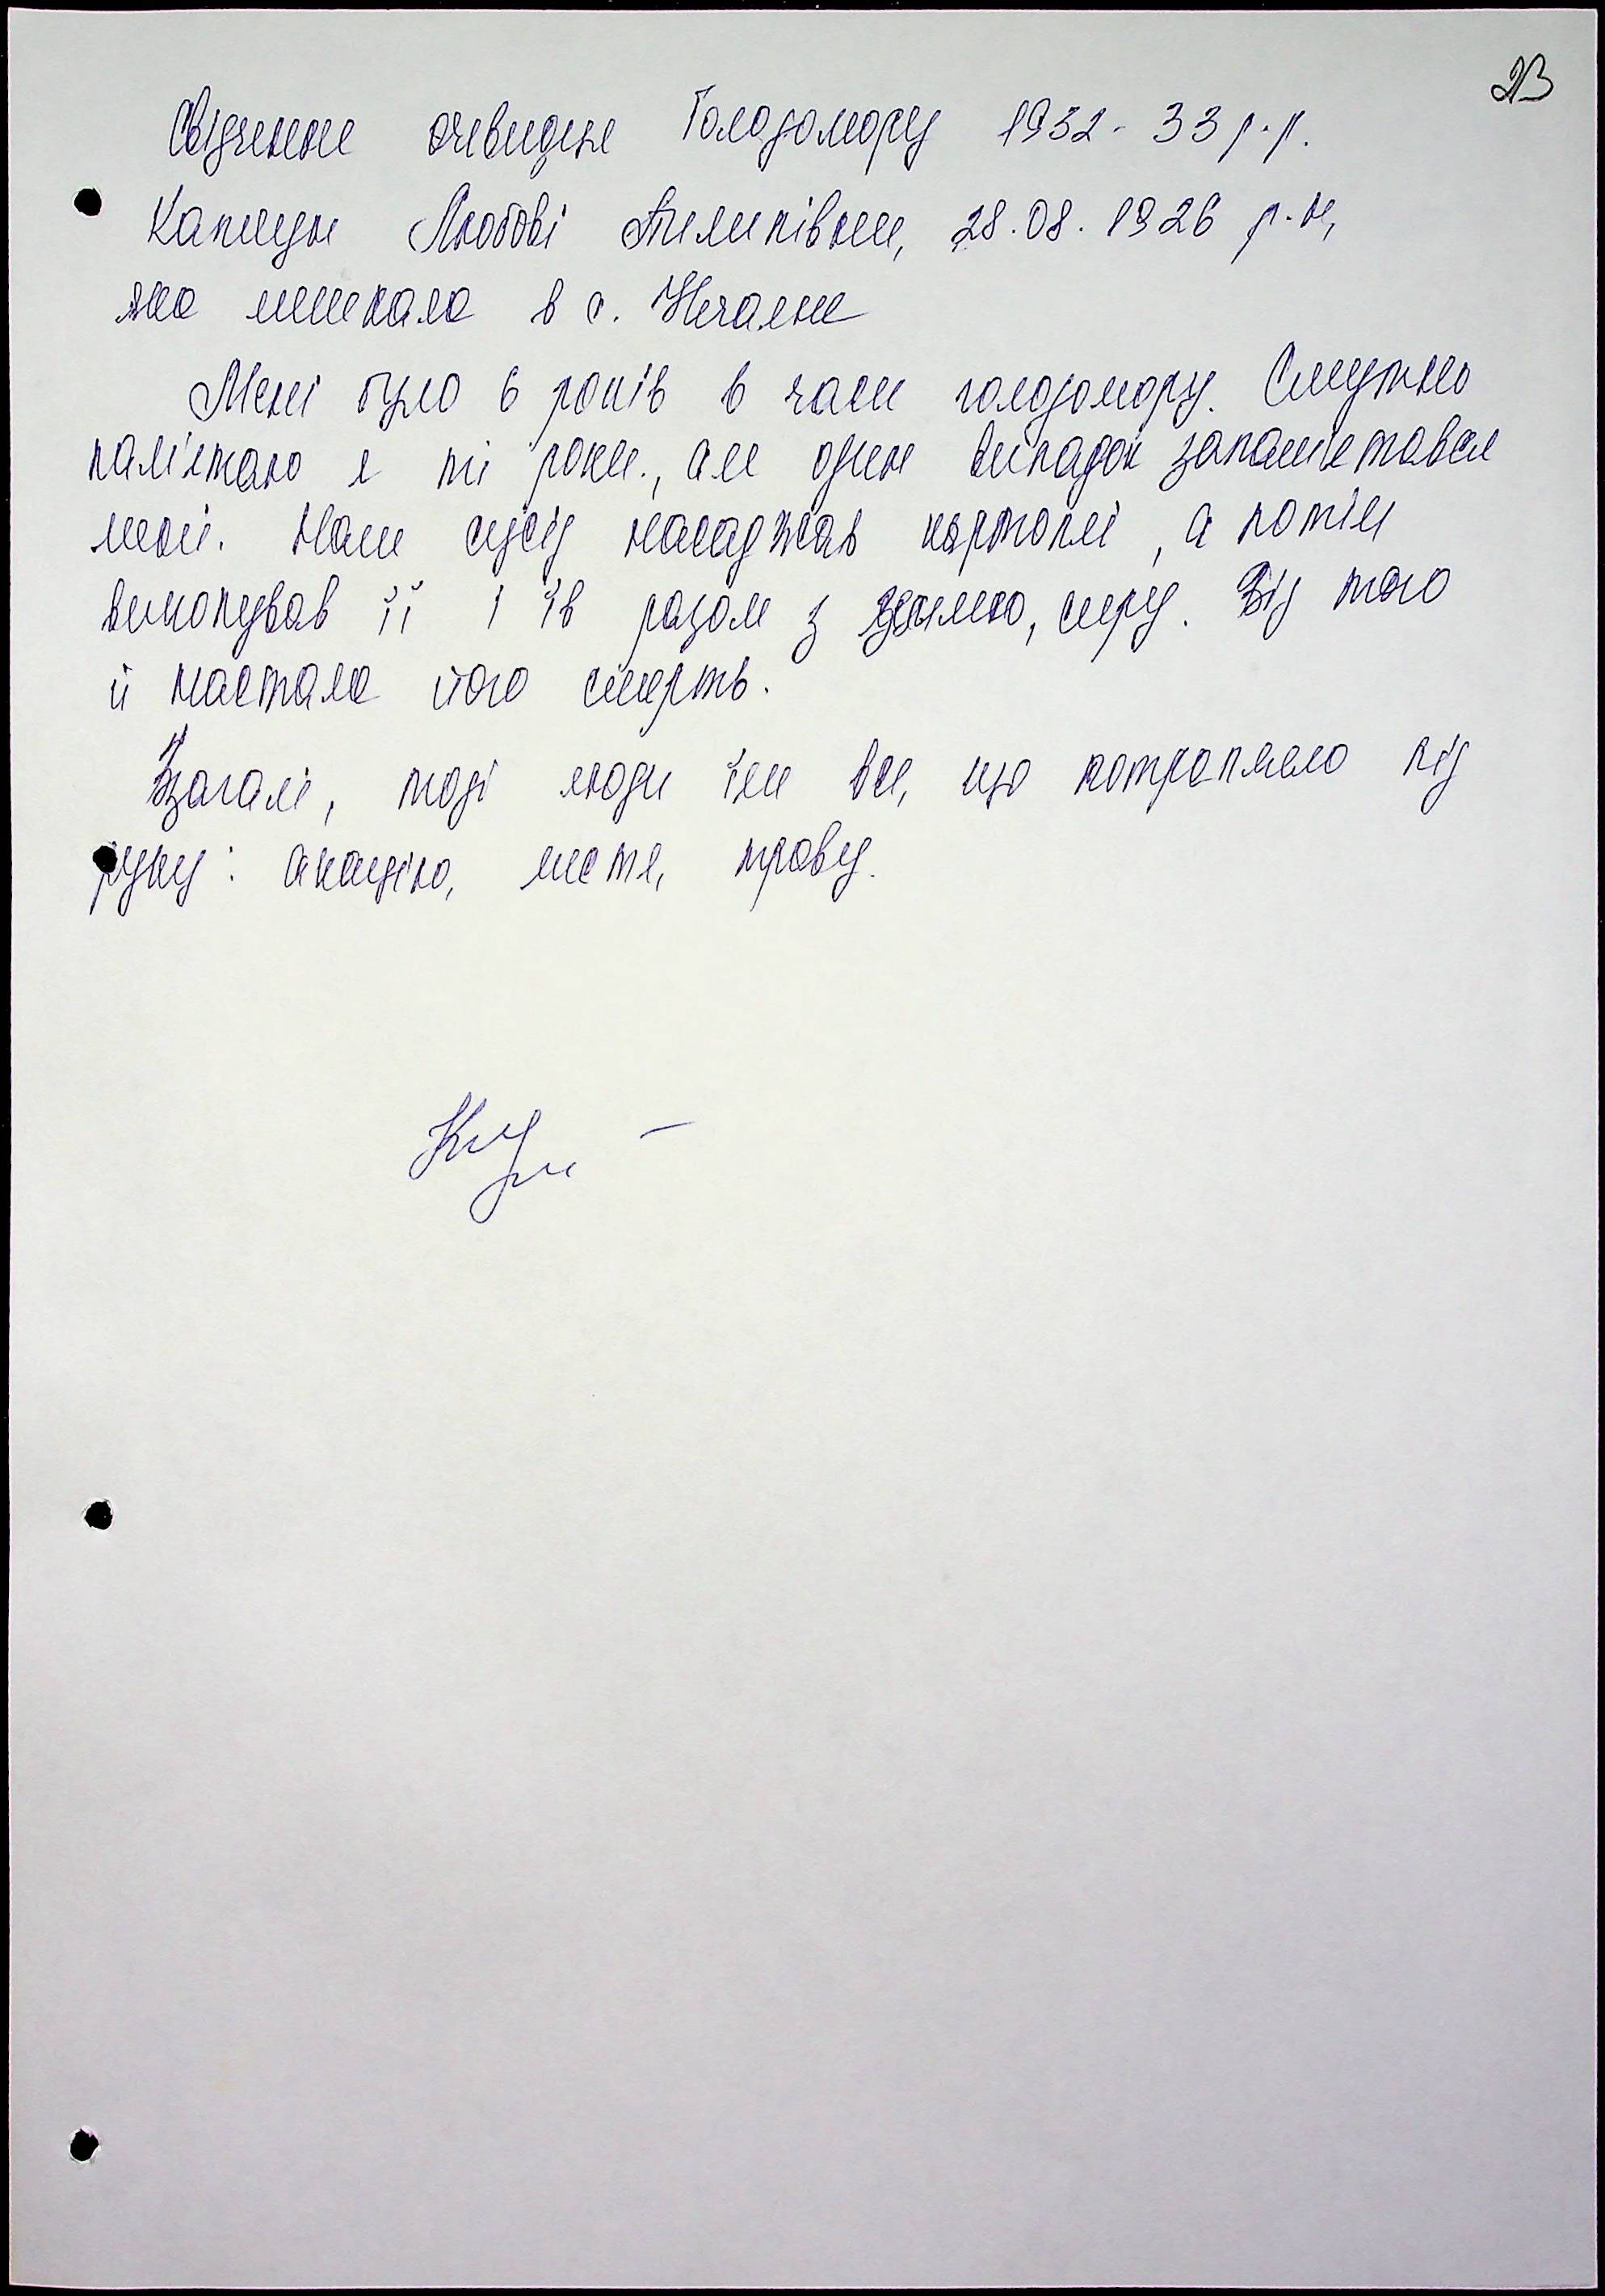 23
Свідчення очевидця Голодомору 1932-33 р.р.
Любові Пилипівни, 28.08.1926 р.н,
яка мешкала в с. Нечаяне
Мені було 6 років в часи голодомору. Смутно
пам'ятаю я ті роки., але один випадок запам'ятався
мені. Наш сусід насаджав картоплі, а потім
викопував її і їв разом з землею, сиру. Від того
й настала його смерть.
Взагалі, тоді люди їли все, що потрапляло під
руку: акацію, листя, траву.